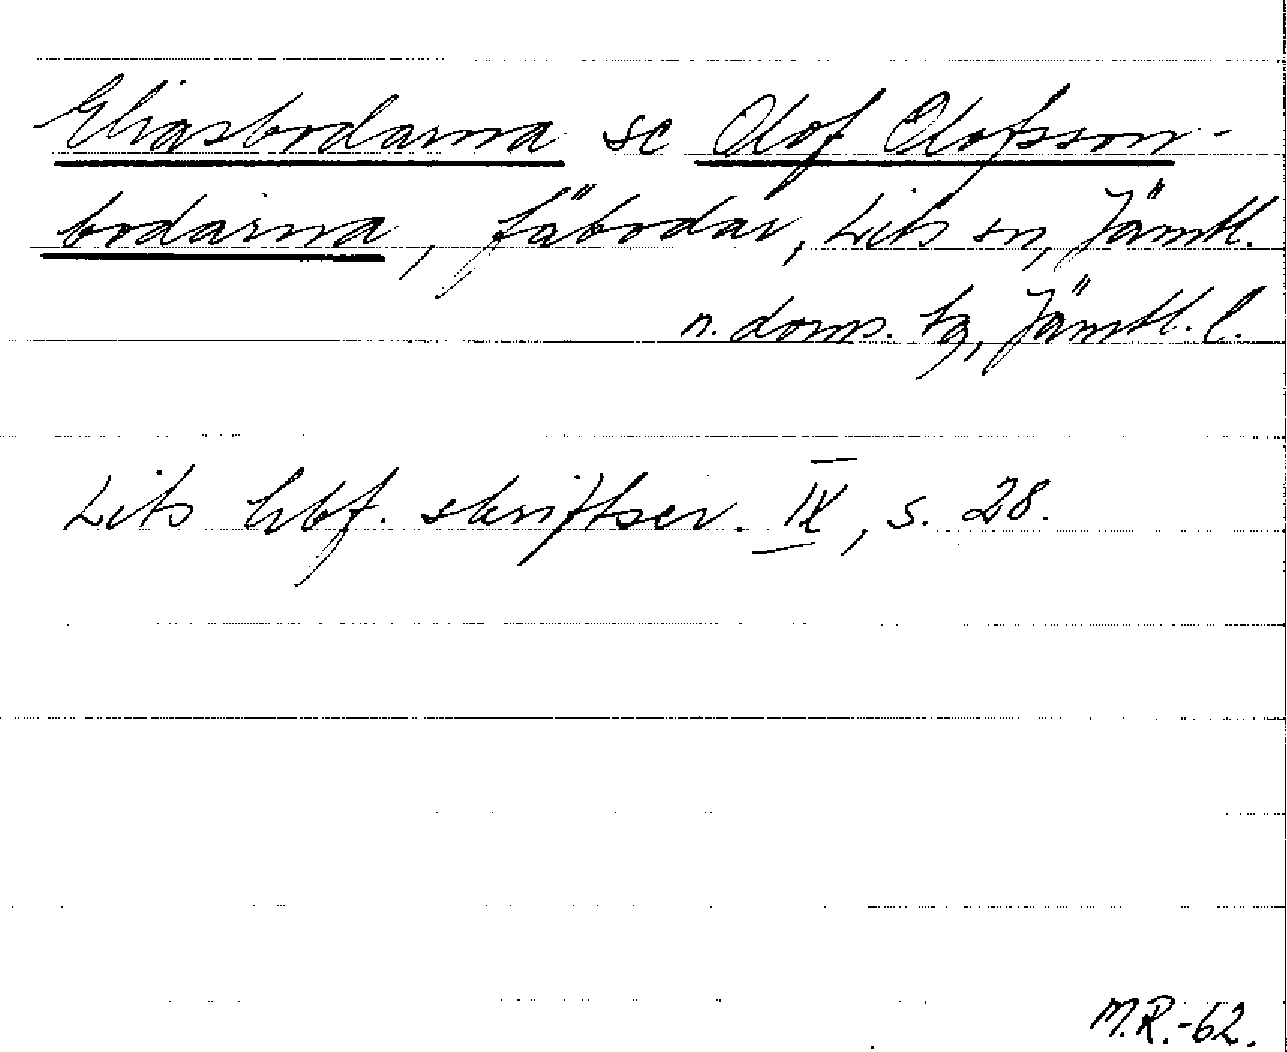 Eliasbodarna se Olof Olofsson-
bodarna, fäbodar, Lits sn, Jämtl.
n. doms. tg, Jämtl. l.
Lits hbf. skriftser. IX, s. 28.
M.R.-62.